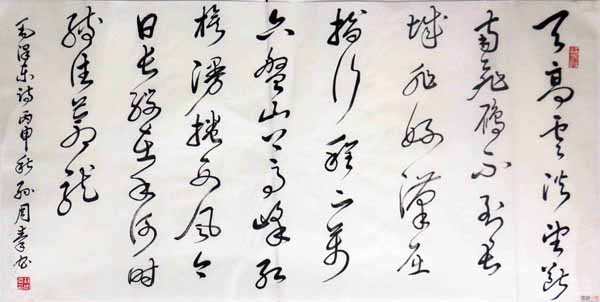 天高云淡望断
南飛雁不到长
城非好漢屈
指行程二萬
六盤山上高峰红
旗漫捲西风今
日长缨在手何时
缚住苍龍
毛泽东詩丙申秋孙周书